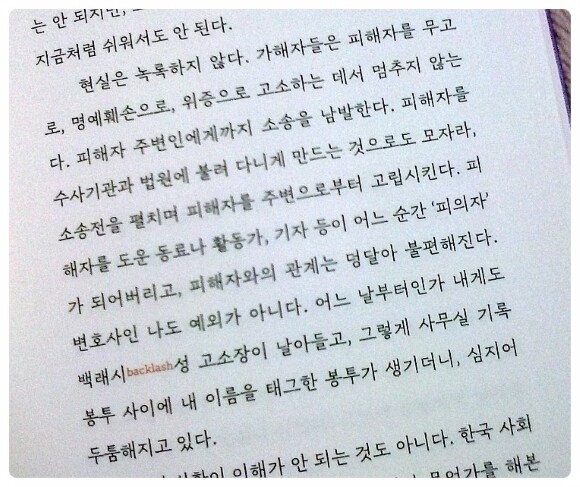 는 안 되지만,
지금처럼 쉬워서도 안 된다.
현실은 녹록하지 않다. 가해자들은 피해자를 무고
로, 명예훼손으로, 위증으로 고소하는 데서 멈추지 않는
다. 피해자 주변인에게까지 소송을 남발한다. 피해자를
수사기관과 법원에 불려 다니게 만드는 것으로도 모자라,
소송전을 펼치며 피해자를 주변으로부터 고립시킨다. 피
해자를 도운 동료나 활동가, 기자 등이 어느 순간 ‘피의자’
가 되어버리고, 피해자와의 관계는 덩달아 불편해진다.
변호사인 나도 예외가 아니다. 어느 날부터인가 내게도
백래시backlash성 고소장이 날아들고, 그렇게 사무실 기록
봉투 사이에 내 이름을 태그한 봉투가 생기더니, 심지어
두툼해지고 있다.
이해가 안 되는 것도 아니다. 한국 사회
무언가를 해본